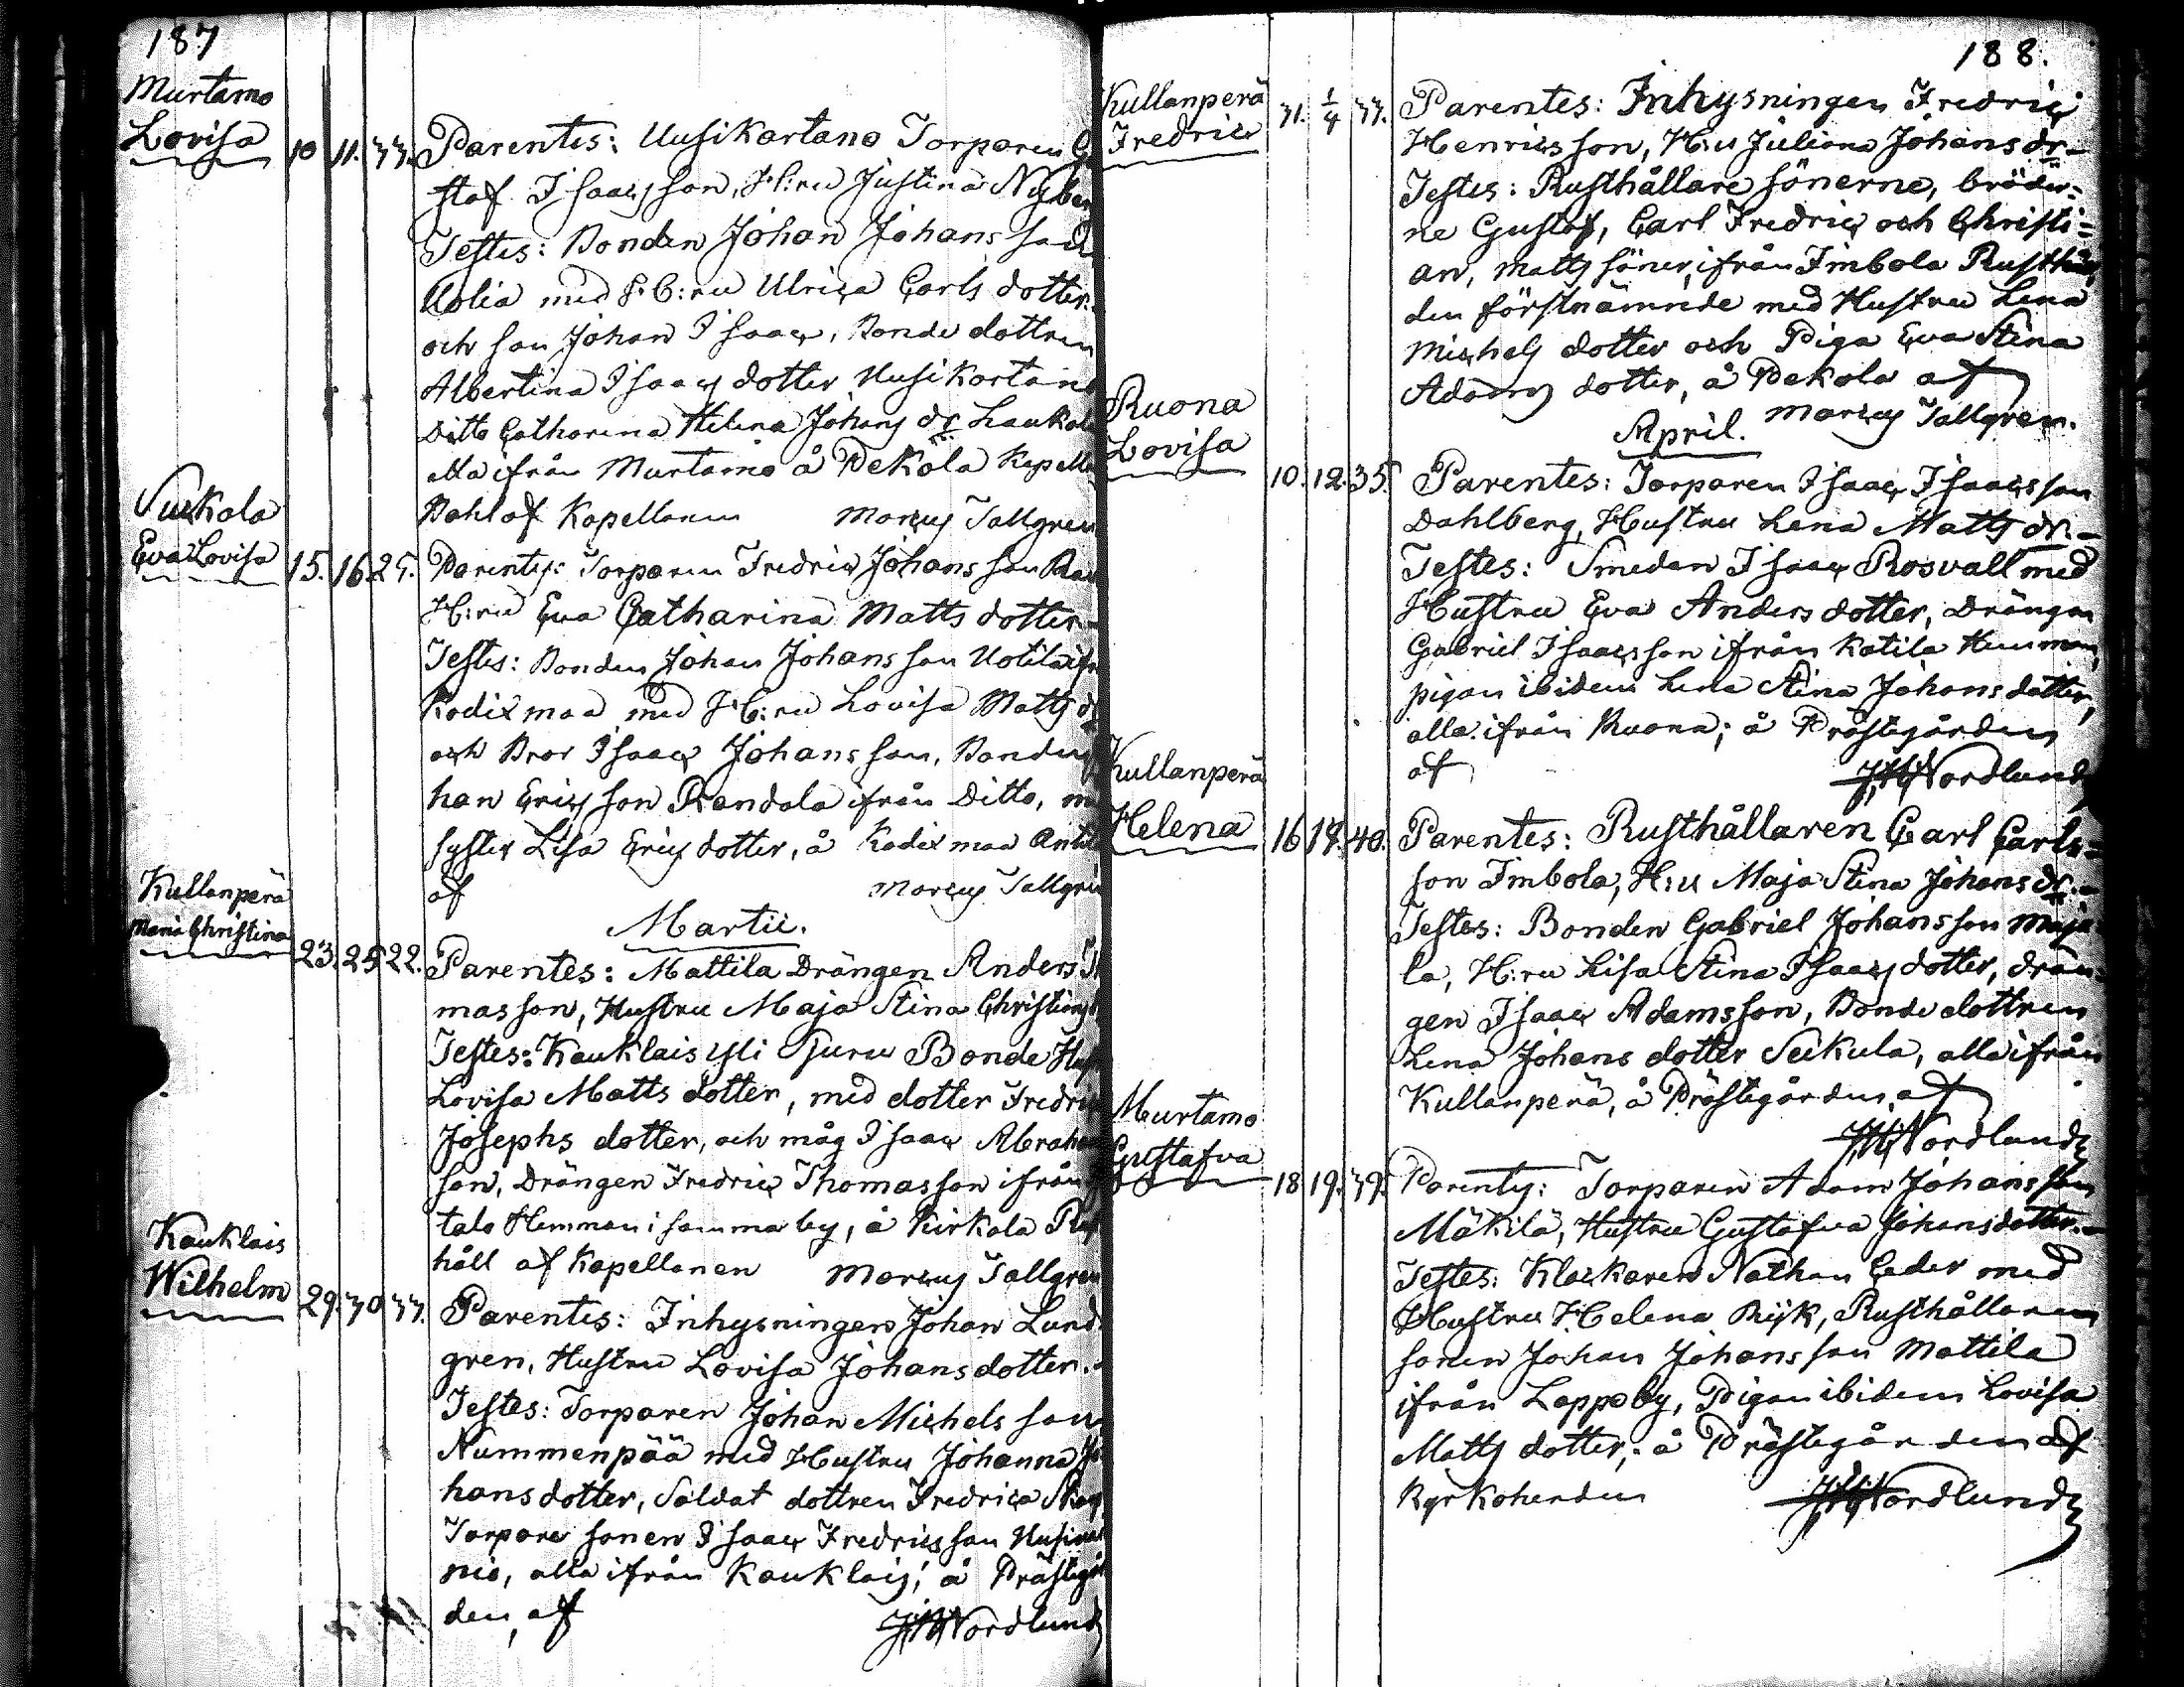 187
Murtamo
Lovisa 10 11. 33. Parentes: Uusikartano Torparen
staf Isaacsson, H:ru Justina Nyber
Testes: Bonden Johan Johansson
med H:ru Ulrica Carls dotter
och son Johan Isaac, Bonde dottren
Albertina Isaacs dotter Uusikartano
Ditto Catharina Helena Johans dr Laukola
alla ifrån Murtamo å Pekola Kapella
Bohl af Kapellanen Marcus Tallgren
Suikola
Eva Lovisa 15. 16. 25. Parentes: Torparen Fredric Johansson
H:ru Eva Catharina Matts dotter
Testes: Bonden Johan Johansson Uotila ifr
Kodixmaa med H:ru Lovisa Matts d
och Bror Isaac Johansson, Bonden
han Ericsson Randala ifrån Ditto, m
syster Lisa Erics dotter, å Kodixmaa
af Marcus Tallgren
Martii.
Kullanperä
Maria Christina 23. 25. 22. Parentes: Mattila Drängen Anders
masson, Hustru Maja Stina Christians
Testes: Kauklais Yli Juru Bonde
Lovisa Matts dotter, med dotter Fredri
Josephs dotter, och måg Isaac Abraham
son, Drängen Fredric Thomasson ifrån
talo Hemman i samma by, å Kirkola
håll af Kapellanen Marcus Tallgren
Kauklais
Wilhelm 29. 30. 33. Parentes: Inhysningen Johan Lund
gren, Hustru Lovisa Johansdotter.
Testes: Torparen Johan Michelsson
Nummenpää med Hustru Johanna Jo
hansdotter, Soldat dottren Fredrica
Torpare sonen Isaac Fredricsson
alla ifrån Kauklais; å Prästegår
den, af Nordlund
188.
Kullanperä
Fredric 31. 1/4 33. Parentes: Inhysningen Fredric
Henricsson, H:u Juliana Johans dr
Testes: Rusthållare sönerne, bröder=
ne Gustaf, Carl Fredric och Christi=
an, Matts söner, ifrån Imbola Rusthåll,
den förstnämnde med Hustru Lena
Michels dotter och Piga Eva Stina
Adams dotter, å Pekola af
Marcus Tallgren.
April.
Ruona
Lovisa 10. 12. 35. Parentes: Torparen Isaac Isaacsson
Dahlberg, Hustru Lena Matts dr.
Testes: Smeden Isaac Rosvall med
Hustru Eva Anders dotter, Drängen
Gabriel Isaacsson ifrån Katila Hemman,
pigan ibidem Lena Stina Johansdotter,
alla ifrån Ruona; å Prästegården
af Nordlund
Kullanperä
Helena 16 18. 40. Parentes: Rusthållaren Carl Carls=
son Imbola, H:u Maja Stina Johans dr.
Testes: Bonden Gabriel Johansson Maja
la, H:ru Lisa Stina Isaacs dotter, drän=
gen Isaac Adamsson, Bonde dottren
Lena Johans dotter Seikula, alla ifrån
Kullanperä, å Prästegården af
Nordlund
Murtamo
Gustafva 18 19. 39. Parentes: Torparen Adam Johansson
Mäkilä, Hustru Gustafva Johansdotter.
Testes: Klockaren Nathan Ceder med
Hustru Helena Ryk, Rusthållaren
sonen Johan Johansson Mattila
ifrån Lappoby, Pigan ibidem Lovisa
Matts dotter; å Prästegården af
Kyrkoherden Nordlund